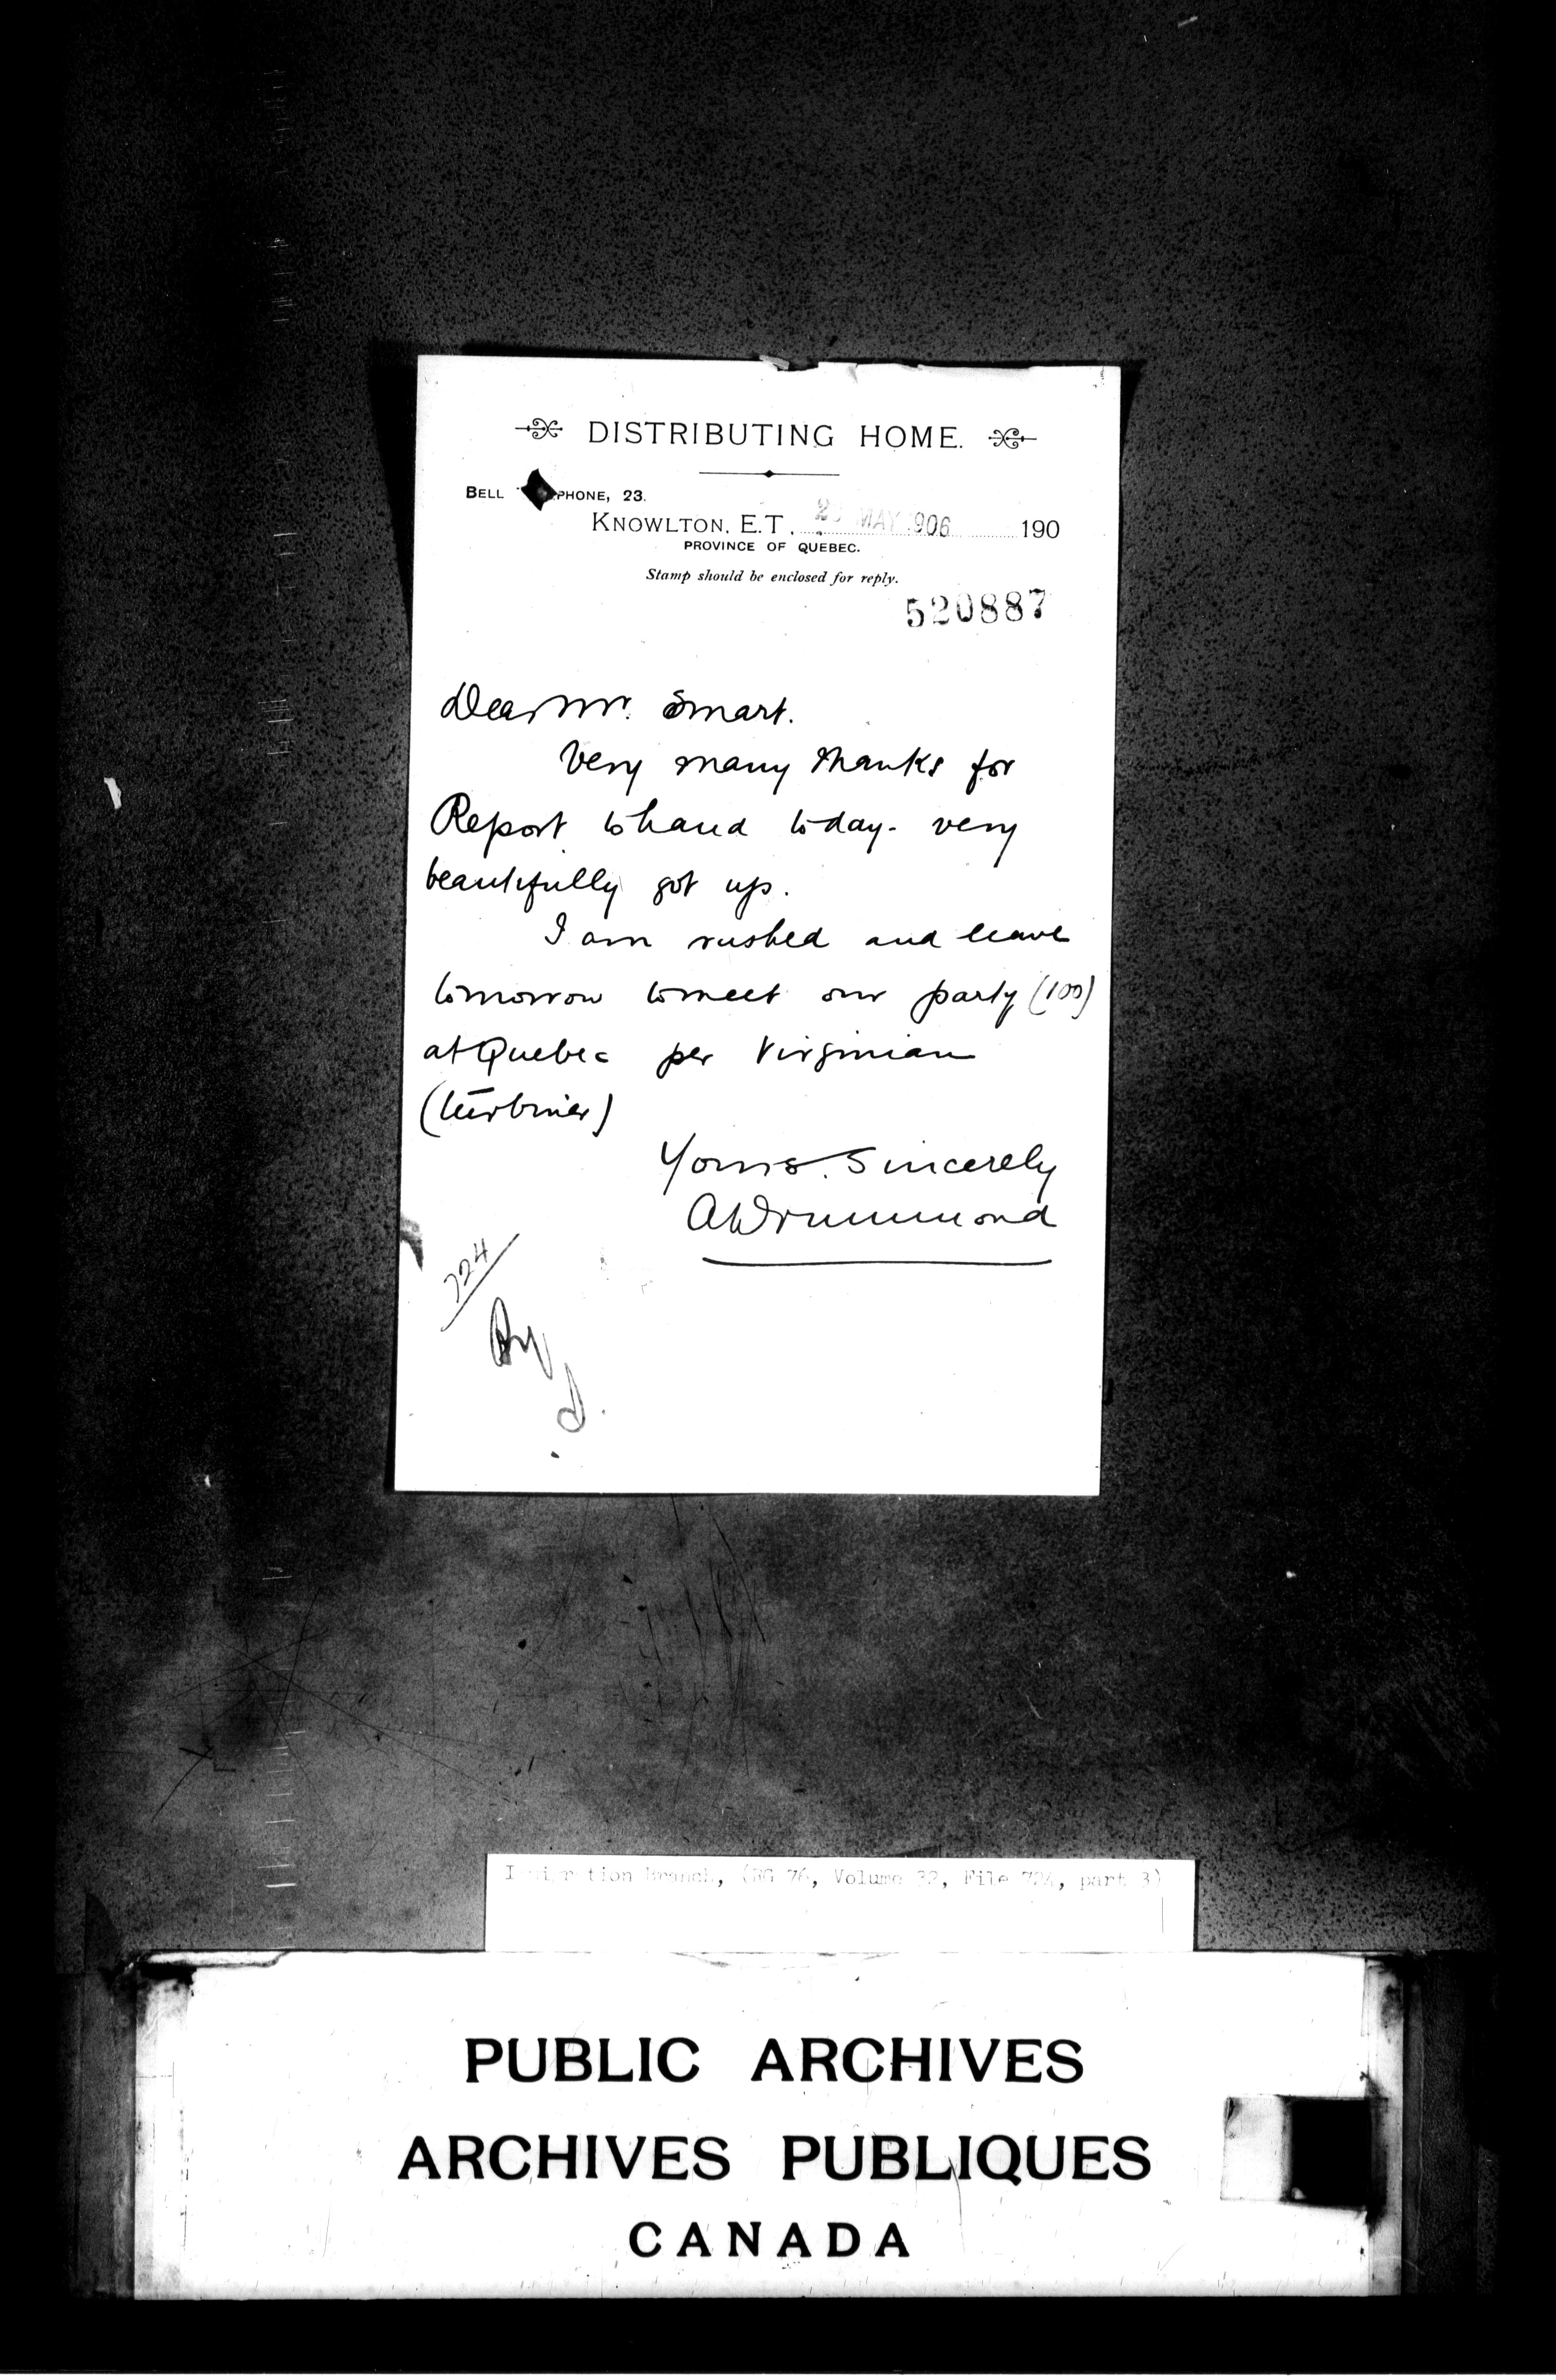 DISTRIBUTING HOME.
BELL PHONE, 23.
KNOWLTON, E.T. MAY 906 190
PROVINCE OF QUEBEC.
Stamp should be enclosed for reply.
520887
Dear Mr. Smart.
Very many thanks for
Report to hand today - very
beautifully got up.
I am rushed and leave
tomorrow to meet our party (100)
at Quebec per Virginian
(turbiner)
Yours Sincerely
A Drummond
724
Immigration Branch, (RG 76, Volume 32, File 724, part 3)
PUBLIC ARCHIVES
ARCHIVES PUBLIQUES
CANADA